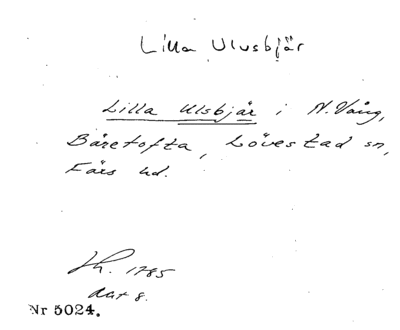 Lilla Ulusbjär
Lilla Ulsbjär i N. Vång,
Båretofta, Lövestad sn,
Färs hd.
Lh. 1785
akt 8.
Nr 5024.